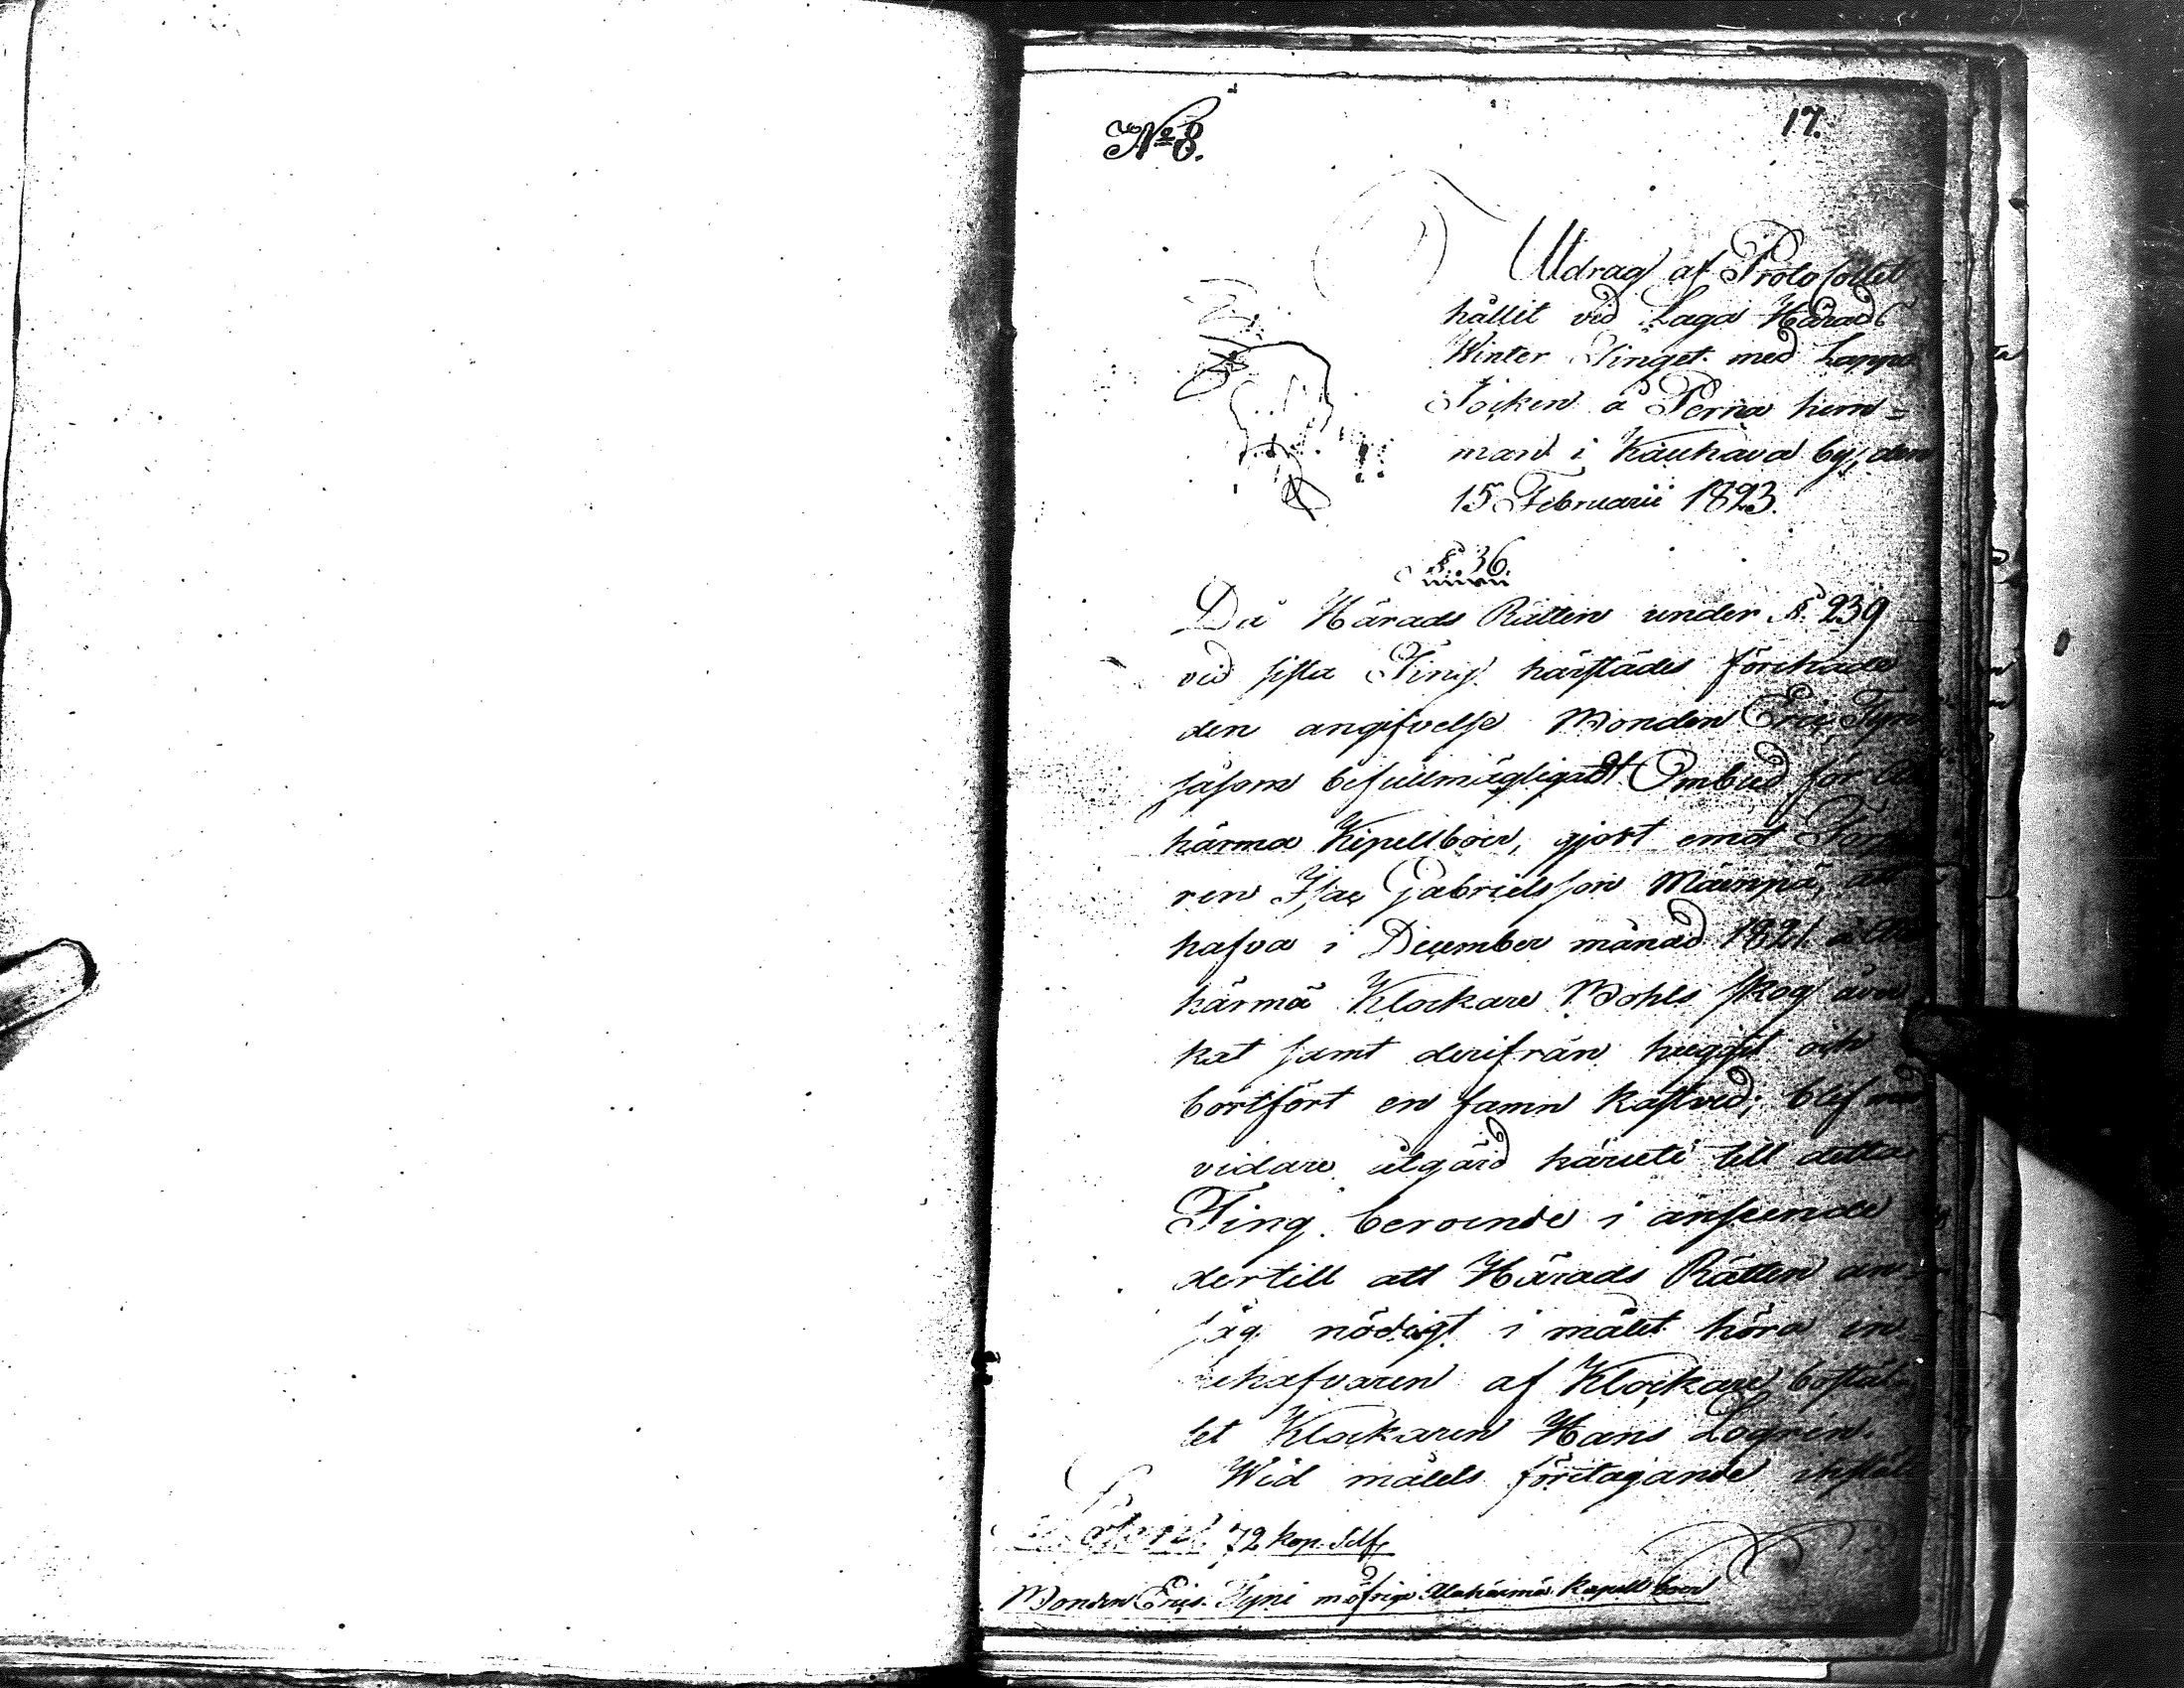 N:o 8.
17.
Utdrag af Protocollet
hållit vid Laga Härads
Winter Tinget med Lappo
Socken å Perna hem=
man i Kauhava by, den
15 Februarii 1823.
§. 36.
Då Härads Rätten under §. 239
vid sista Ting härstädes förehade
den angifvelse Bonden Eric Tyni
såsom befullmägtigadt Ombud för
härmä Kapellboer, gjort emot
ren Isac Gabrielsson Mäenpä, att
hafva i December månad 1821. å
härmä Klockare Bohls skog åver
kat samt derifrån huggit och
bortfört en famn kastved; blef med
vidare åtgärd häruti till detta
Ting beroende i anseende
dertill att Härads Rätten an=
såg nödigt i målet höra in=
nehafvaren af Klockare bostäl=
let Klockaren Hans Logrén.
Wid målets företagande instäl
72 kop. Silf.
Bonden Eric Tyni m. öfrige Alahärmä Kapellboer